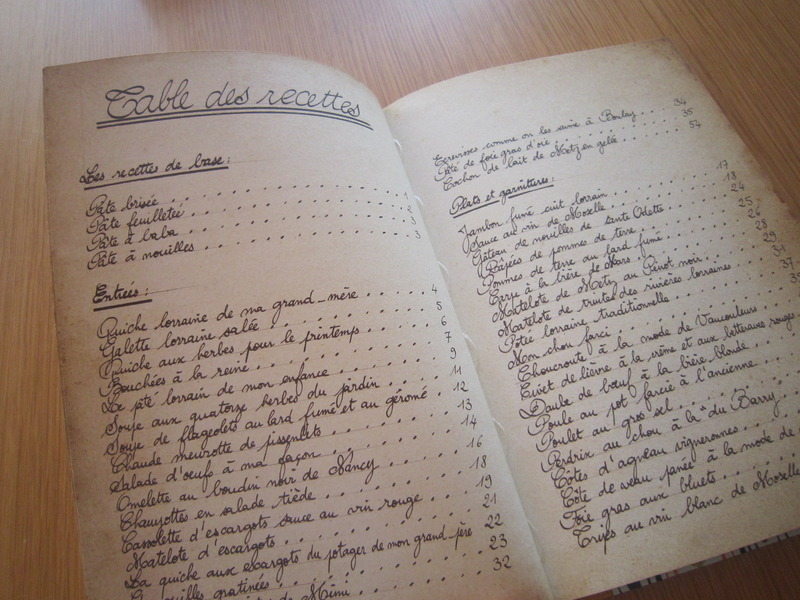 Table des recettes
Les recettes de base :
Pâte brisée 1
Pâte feuilletée
Pâte à baba 3
Pâte à nouilles 3
Entrées :
Quiche lorraine de ma grand-mère 4
Galette lorraine salée 5
Quiche aux herbes pour le printemps 6
Bouchées à la reine 7
Le pâté lorrain de mon enfance 9
Soupe aux quatorze herbes du jardin 11
Soupe de flageolets au lard fumé et au géromé 12
Chaude meurotte de pissenlits 13
Salade d'oeufs à ma façon 14
Omelette au boudin noir de Nancy 16
Chayottes en salade tiède 18
Cassolette d'escargots sauce au vin rouge 19
Matelote d'escargots 21
La quiche aux escargots du potager de mon grand-père 22
gratinées 23
de Mimi 32
Ecrevisses comme on les aime à Boulay 34
Pâté de foie gras d'oie 35
Cochon de lait de Metz en gelée 54
Plats et garnitures :
Jambon fumé cuit lorrain 17
Sauce au vin de Moselle 18
Gâteau de nouilles de tante Odette 24
Râpées de pommes de terre 25
Pommes de terre au lard fumé 26
Carpe à la bière de Mars 28
Matelote de Metz au Pinot noir 29
Matelote de truites des rivières lorraines 31
Potée lorraine traditionnelle 37
Mon chou farci
Choucroute à la mode de Vaucouleurs
Civet de lièvre à la crème et aux betteraves rouges
Daube de boeuf à la bière blonde
Poule au pot farcie à l'ancienne
Poulet au gros sel
Perdrix au chou à la "du Barry"
Côtes d'agneau vigneronnes
Côte de veau panée à la mode de
Foie gras aux bluets
Tripes au vin blanc de Moselle